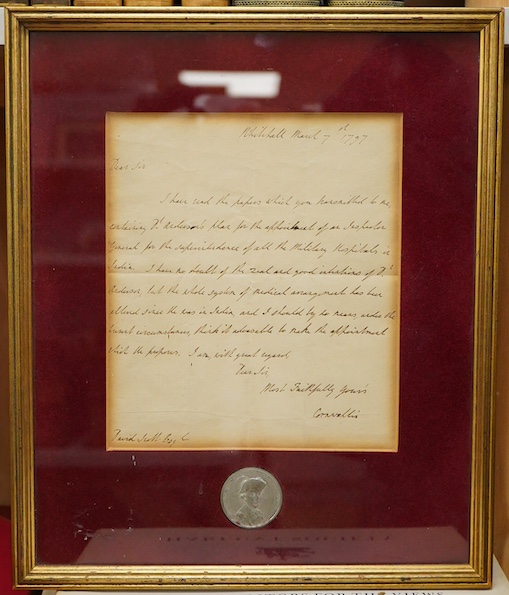 Whitehall March 7th 1797
Dear Sir
I have read the papers which you transmitted to me,
containing Dr Anderson's plan for the appointment of an Inspector
General for the superintendence of all the Military Hospitals in
India. I have no doubt of the zeal and good intentions of Dr
Anderson, but the whole system of medical arrangement has been
altered since he was in India, and I should by no means, under the
circumstances, think it adviseable to make the appointment
which he proposes. I am, with great regard,
Dear Sir,
Most Faithfully Yours
Cornwallis
David Scott Esqr